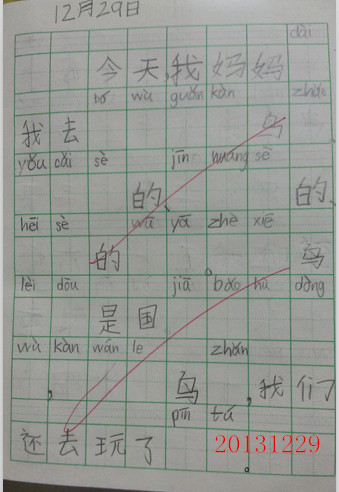 12月29日
dài
今天,我妈妈
bó wù guǎn kàn zhǎn
我去 鸟
yǒu cǎi sè jīn huáng sè
的、 的、
hēi sè wū yā zhè xiē
的 鸟
lèi dōu jiā bǎo hù dòng
是国
wù kàn wán le zhǎn
, 鸟,我们
pīn tú
还去玩了 。
20131229